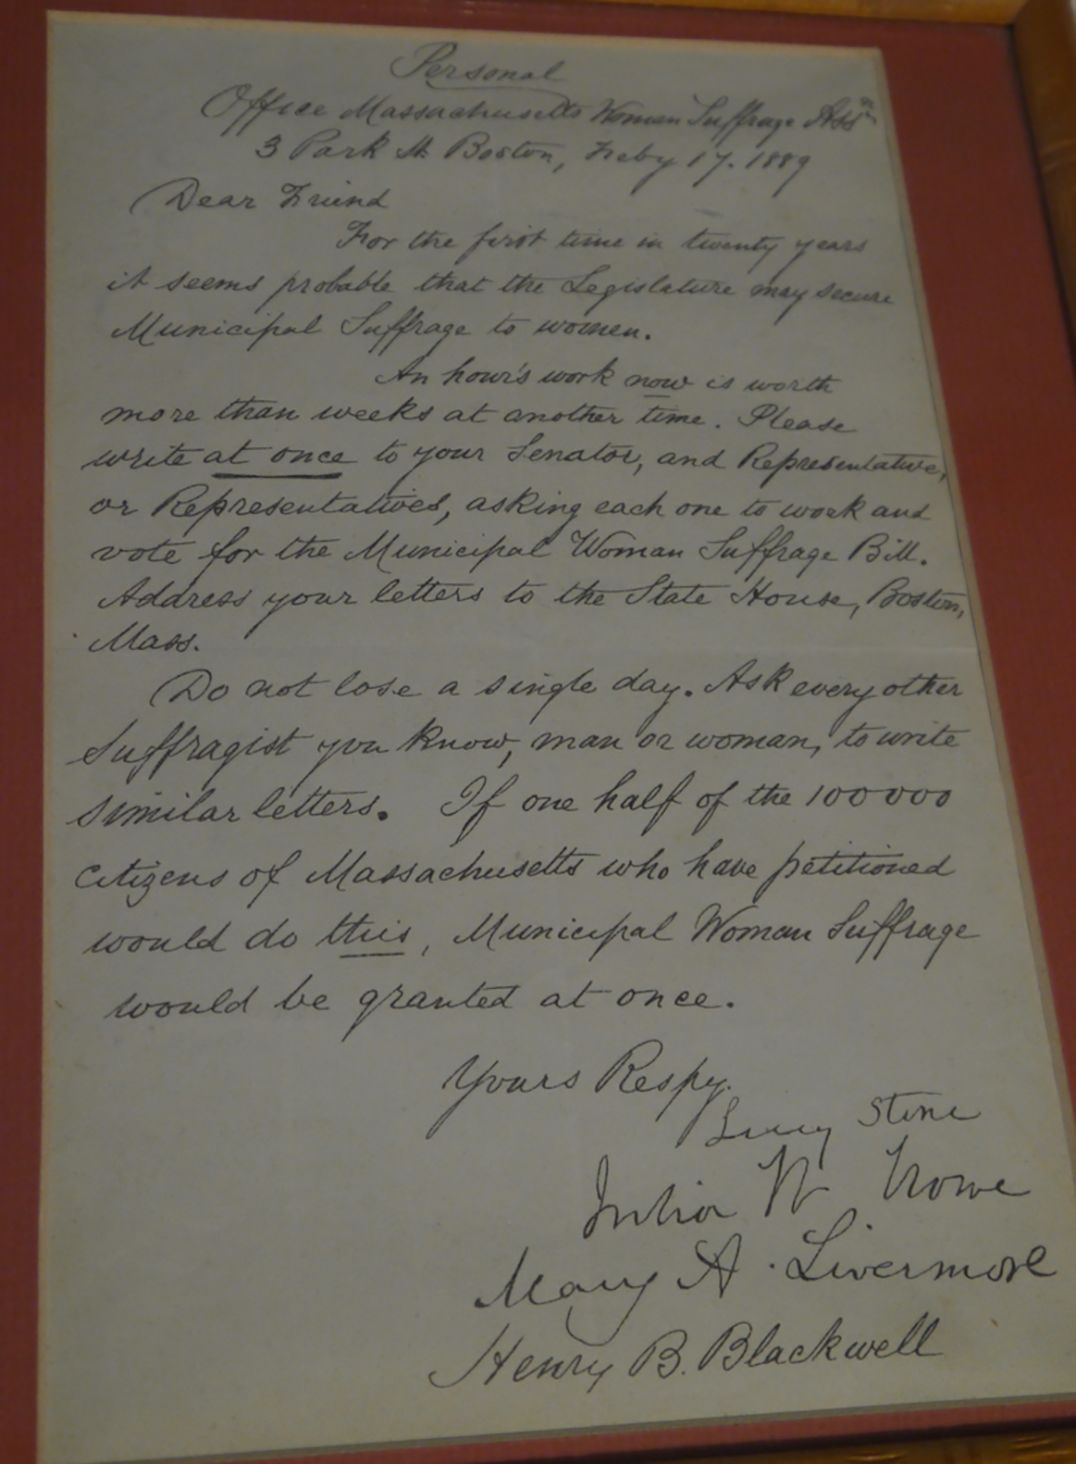 Personal
Office Massachusetts Woman Suffrage Assn
3 Park St. Boston, Feby 17. 1889
Dear Friend
For the first time in twenty years
it seems probable that the Legislature may secure
Municipal Suffrage to women.
An hour's work now is worth
more than weeks at another time. Please
write at once to your Senator, and Representative,
or Representatives, asking each one to work and
vote for the Municipal Woman Suffrage Bill.
Address your letters to the State House, Boston,
Mass.
Do not lose a single day. Ask every other
Suffragist you know, man or woman, to write
similar letters. If one half of the 100000
citizens of Massachusetts who have petitioned
would do this, Municipal Woman Suffrage
would be granted at once.
Yours Respy.
Lucy Stone
Julia W Howe
Mary A. Livermore
Henry B. Blackwell